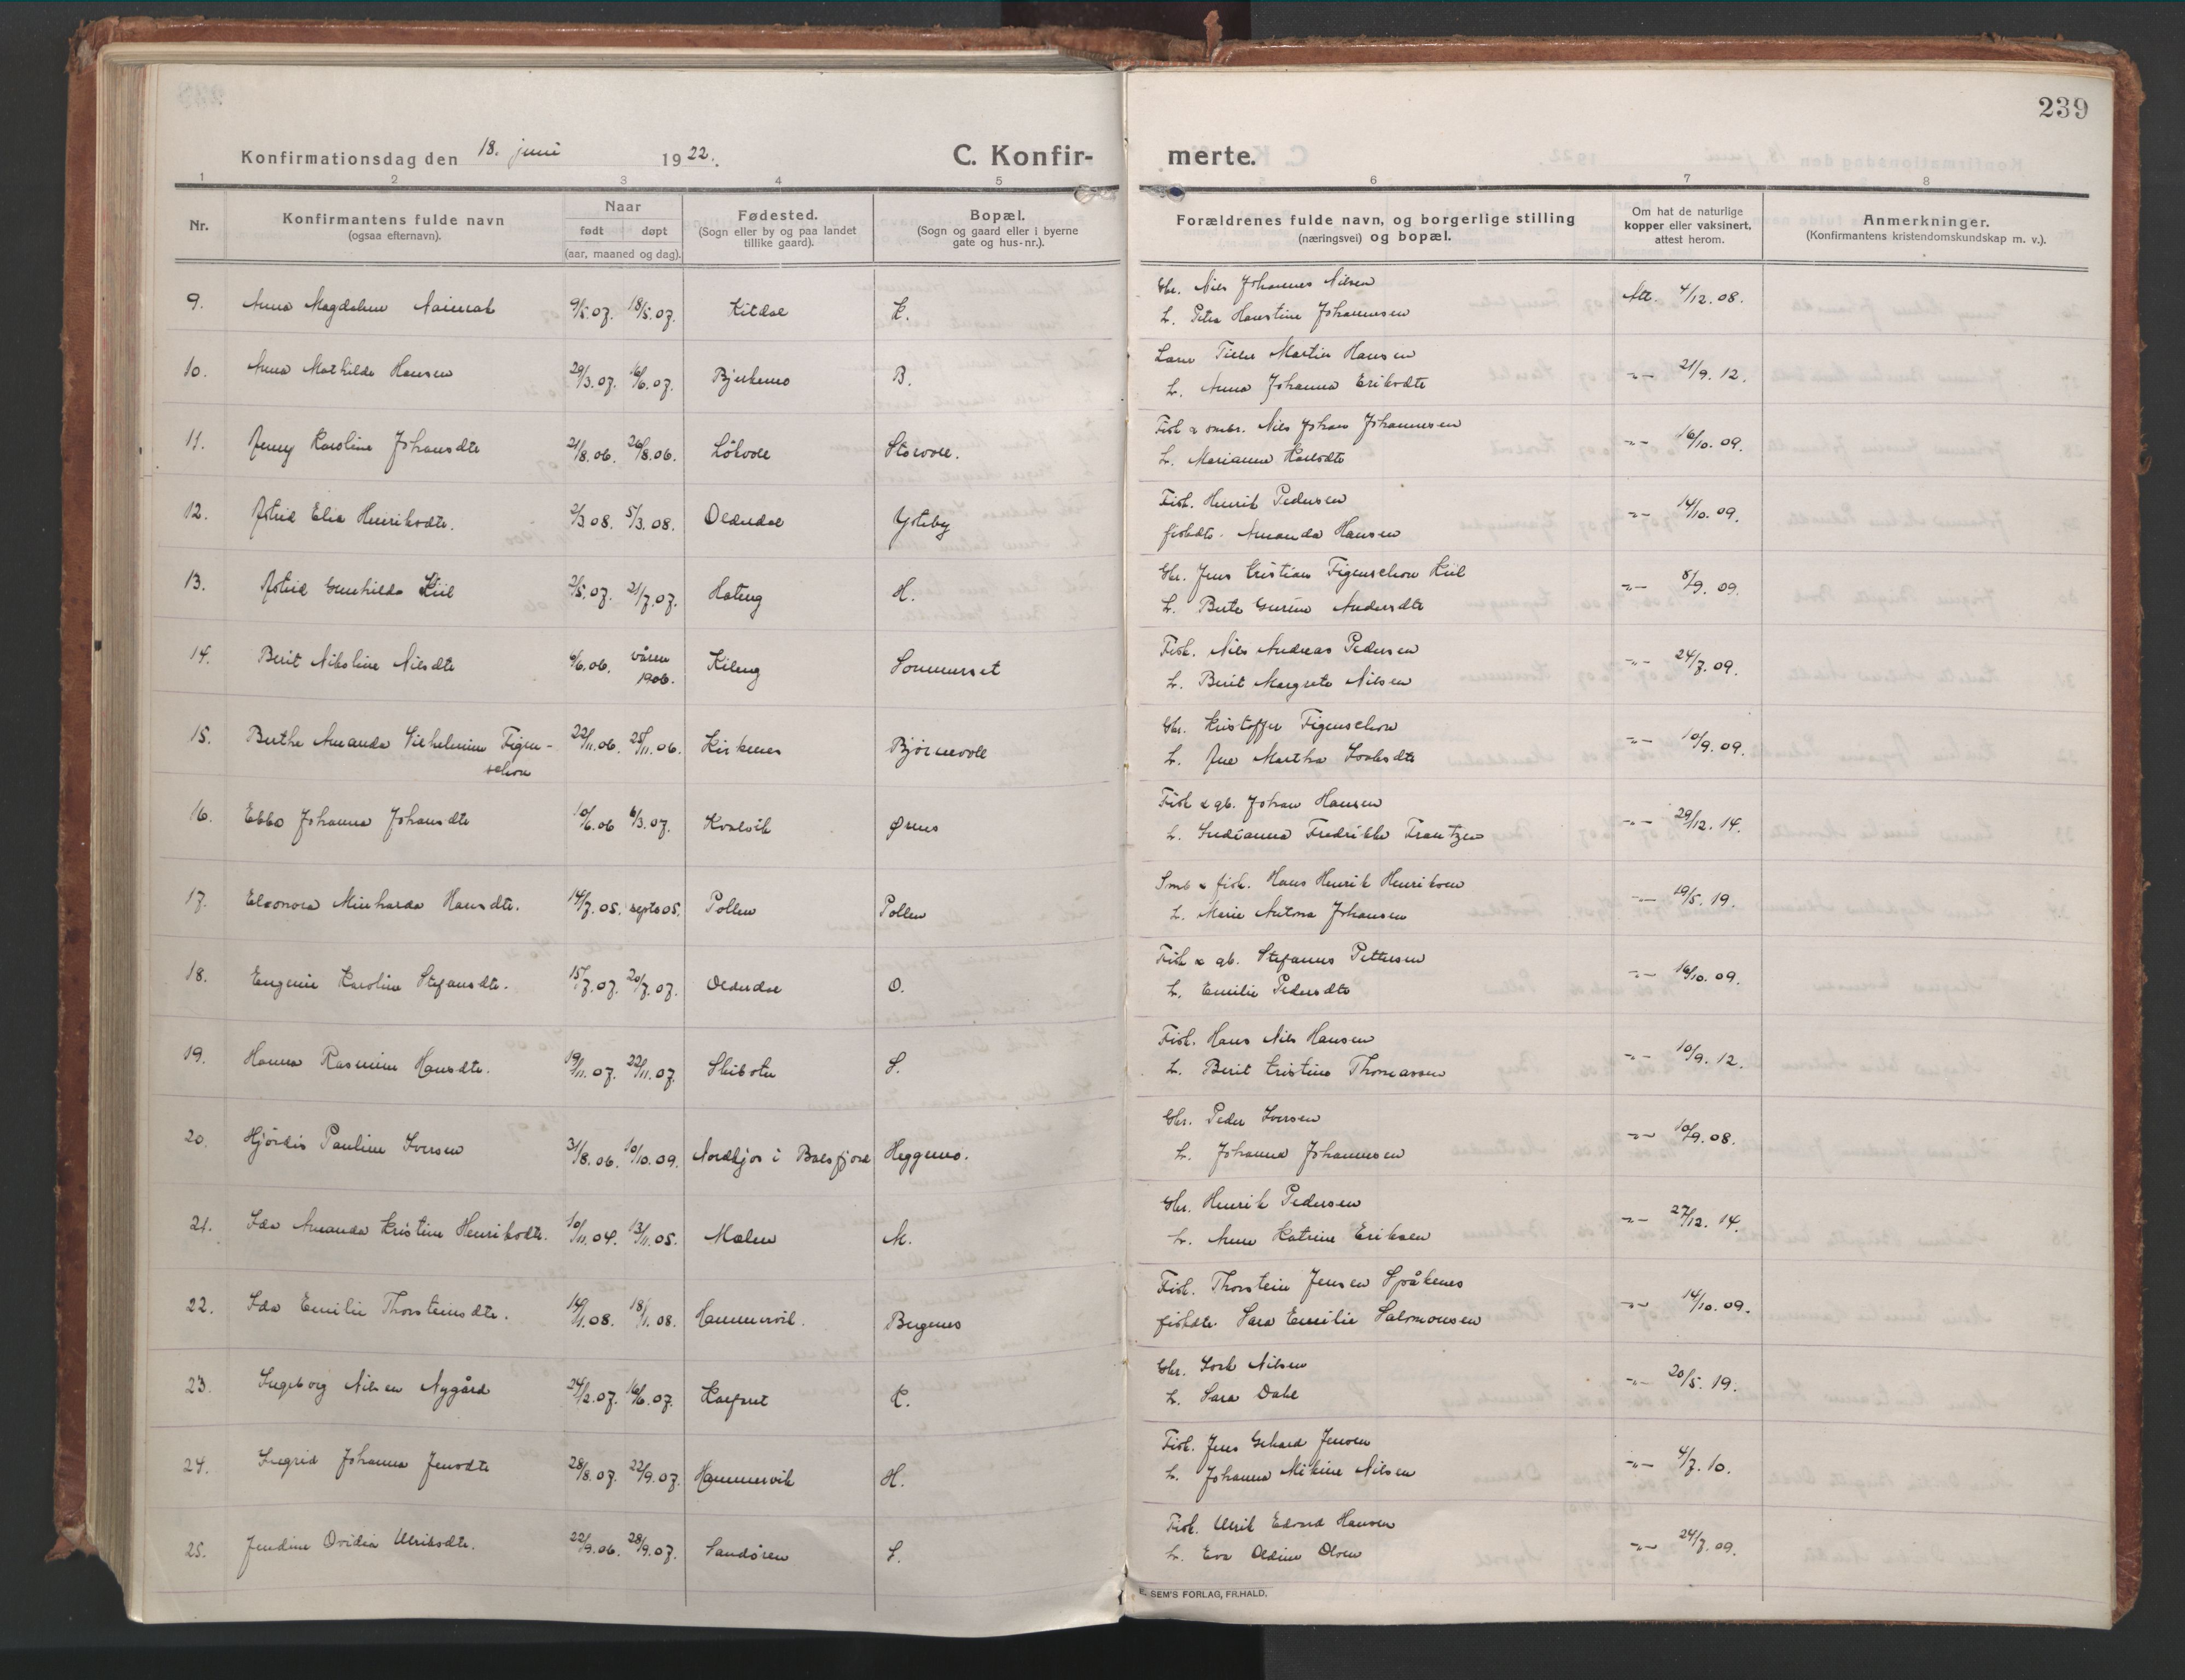 239
Konfirmationsdag den 18. juni 1922.
C. Konfir-
merte.
1 2 3 4 5 6 7 8
Nr.
Konfirmantens fulde navn
(ogsaa efternavn).
Naar
født døpt
(aar, maaned og dag).
Fødested.
(Sogn eller by og paa landet
tillike gaard).
Bopæl.
(Sogn og gaard eller i byerne
gate og hus-nr.).
Forældrenes fulde navn, og borgerlige stilling
(næringsvei) og bopæl.
Om hat de naturlige
kopper eller vaksinert,
attest herom.
Anmerkninger.
(Konfirmantens kristendomskundskap m. v.).
9. Anna Magdalene 9/5.07. 18/5.07. Kitdal K. Gbr. Nils Johannes Nilsen Att. 4/12.08.
h. Petra Hanstine Johannesen
10. Anna Mathilde Hansen 29/3.07. 16/6.07. B. Martin Hansen -"- 21/9.12.
h. Anna Johanna Eriksdtr
11. Jenny Karoline Johansdtr 21/8.06. 26/8.06. Storvoll. Fisk & smbr. Nils Johan Johannesen -"- 16/10.09.
h. Marianna Karlsdtr
12. Astrid Elia Henriksdtr. 2/3.08. 5/3.08. Olderdal Yttreby Fisk. Henrik Pedersen -"- 14/10.09.
fiskdtr. Amanda Hansen
13. Astrid Gunhilda Kiil 2/5.07. 21/7.07. Hateng H. Gbr. Jens Kristian Figenschou Kiil -"- 8/9.09.
h. Berte Gurine Andersdtr
14. Berit Nikoline Nilsdtr 9/6.06. våren Kileng Sommerset Fisk. Nils Andreas Pedersen -"- 24/7.09.
1906.
h. Berit Margrete Nilsen
15. Berthe Amanda Vilhelmine Figen- 22/11.06. 25/11.06. Kirkenes Bjørnevoll Gbr. Kristoffer Figenschou -"- 10/9.09.
schou
h. Ane Martha Isaksdtr
16. Ebba Johanna Johansdtr 10/6.06 6/3.07. Kvalvik Ørnes Fisk & gb. Johan Hansen -"- 29/12.14.
h. Indianna Fredrikke Frantzen
17. Eleonora Minharda Hansdtr. 14/7.05. sept 05. Pollen Pollen Smb & fisk. Hans Henrik Henriksen -"- 19/5.19.
h. Marie Antona Johansen
18. Eugenie Karoline Stefansdtr. 15/7.07. 20/7.07. Olderdal O. Fisk & gb. Stefanus Pettersen -"- 16/10.09.
h. Emilie Pedersdtr
19. Hanna Rasmine Hansdtr. 19/11.07. 22/11.07. Skibotn S. Fisk. Hans Nils Hansen -"- 10/9.12.
h. Berit Kristine Thomassen
20. Hjördis Pauline Iversen 31/8.06. 10/10.09. Nordkjos i Balsfjord Heggemo. Gbr. Peder Iversen -"- 10/9.08.
h. Johanna Johannesen
21. Ida Amanda Kristine Henriksdtr. 10/11.04. 13/11.05. Malen M. Gbr. Henrik Pedersen -"- 27/12.14.
h. Anne Katrine Eriksen
22. Ida Emilie Thorsteinsdtr. 14/1.08. 18/1.08. Hammervik. Fisk. Thorstein Jensen Spåkenes -"- 14/10.09.
fiskdtr. Sara Emilie Salomonsen
23. Ingeborg Nilsen Nygård 24/2.07. 16/6.07. K. Gbr. Isak Nilsen -"- 20/5.19.
h. Sara Dahl
24. Ingrid Johanna Jensdtr 28/8.07. 22/9.07. Hammervik H. Fisk. Jens Gerhard Jensen -"- 4/7.10.
h. Johanna Mikine Nilsen
25. Jendine Ovidia Ulriksdtr. 22/9.06. 28/9.07. Sandören S. Fisk. Ulrik Edvard Hansen -"- 24/7.09.
h. Eva Oldine Olsen
E. SEM'S FORLAG, FR.HALD.